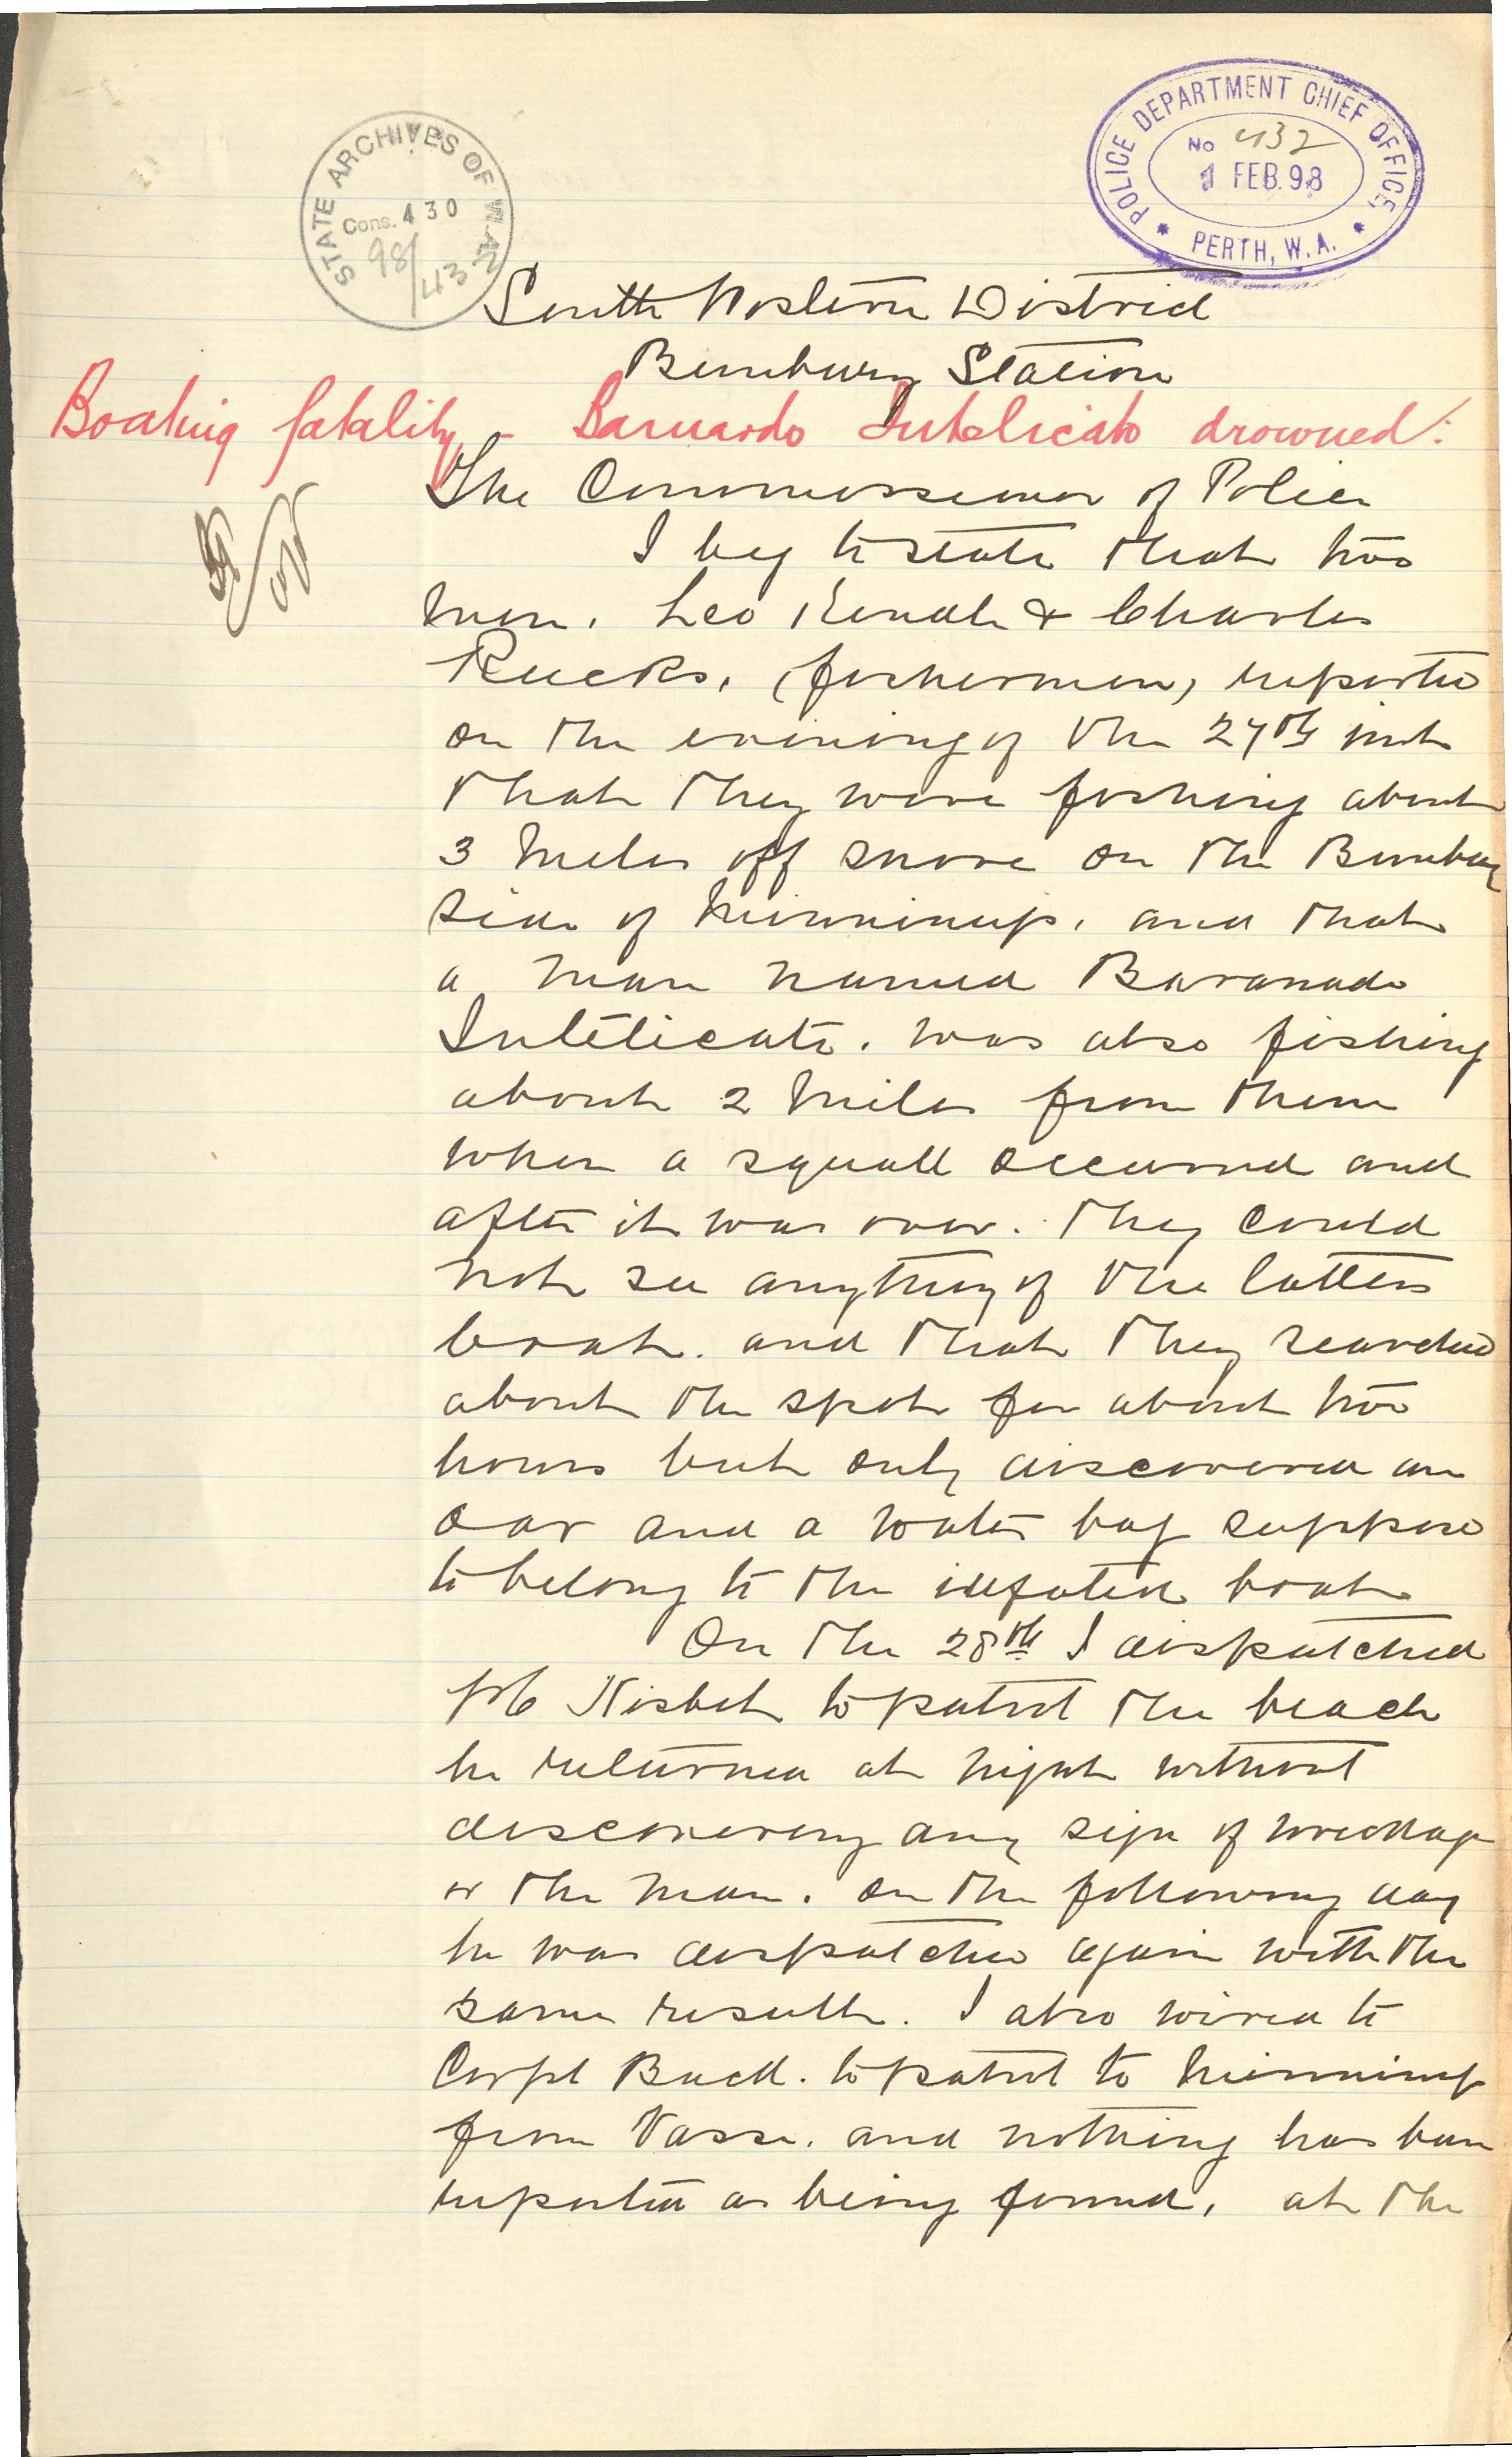 STATE ARCHIVES OF W.A.
Cons. 430
98/43
POLICE DEPARTMENT CHIEF OFFICE,
No 432
1 FEB. 98
* PERTH, W.A. *
South Western District
Bunbury Station
Boating fatality - Barnardo Intelicato drowned:
The Commissioner of Police
I beg to state that two
men. Leo & Charles
Rucks, (fishermen) reported
on the evening of the 27th inst
that they were fishing about
3 miles off shore on the Bunbury
side of Minninup. and that
a man named Baranado
Intelicato. was also fishing
about 2 miles from them
when a squall occurred and
after it was over. they could
not see anything of the latters
boat. and that they searched
about the spot for about two
hours but only discovered an
oar and a water bag suppose
to belong to the illfated boat
On the 28th I dispatched
PC Nisbet to patrol the beach
he returned at night without
discovering any sign of wreckage
or the man. on the following day
he was dispatched again with the
same result. I also wired to
Corpl Back. to patrol to Minninup
from Vasse. and nothing has been
reported as being found, at the